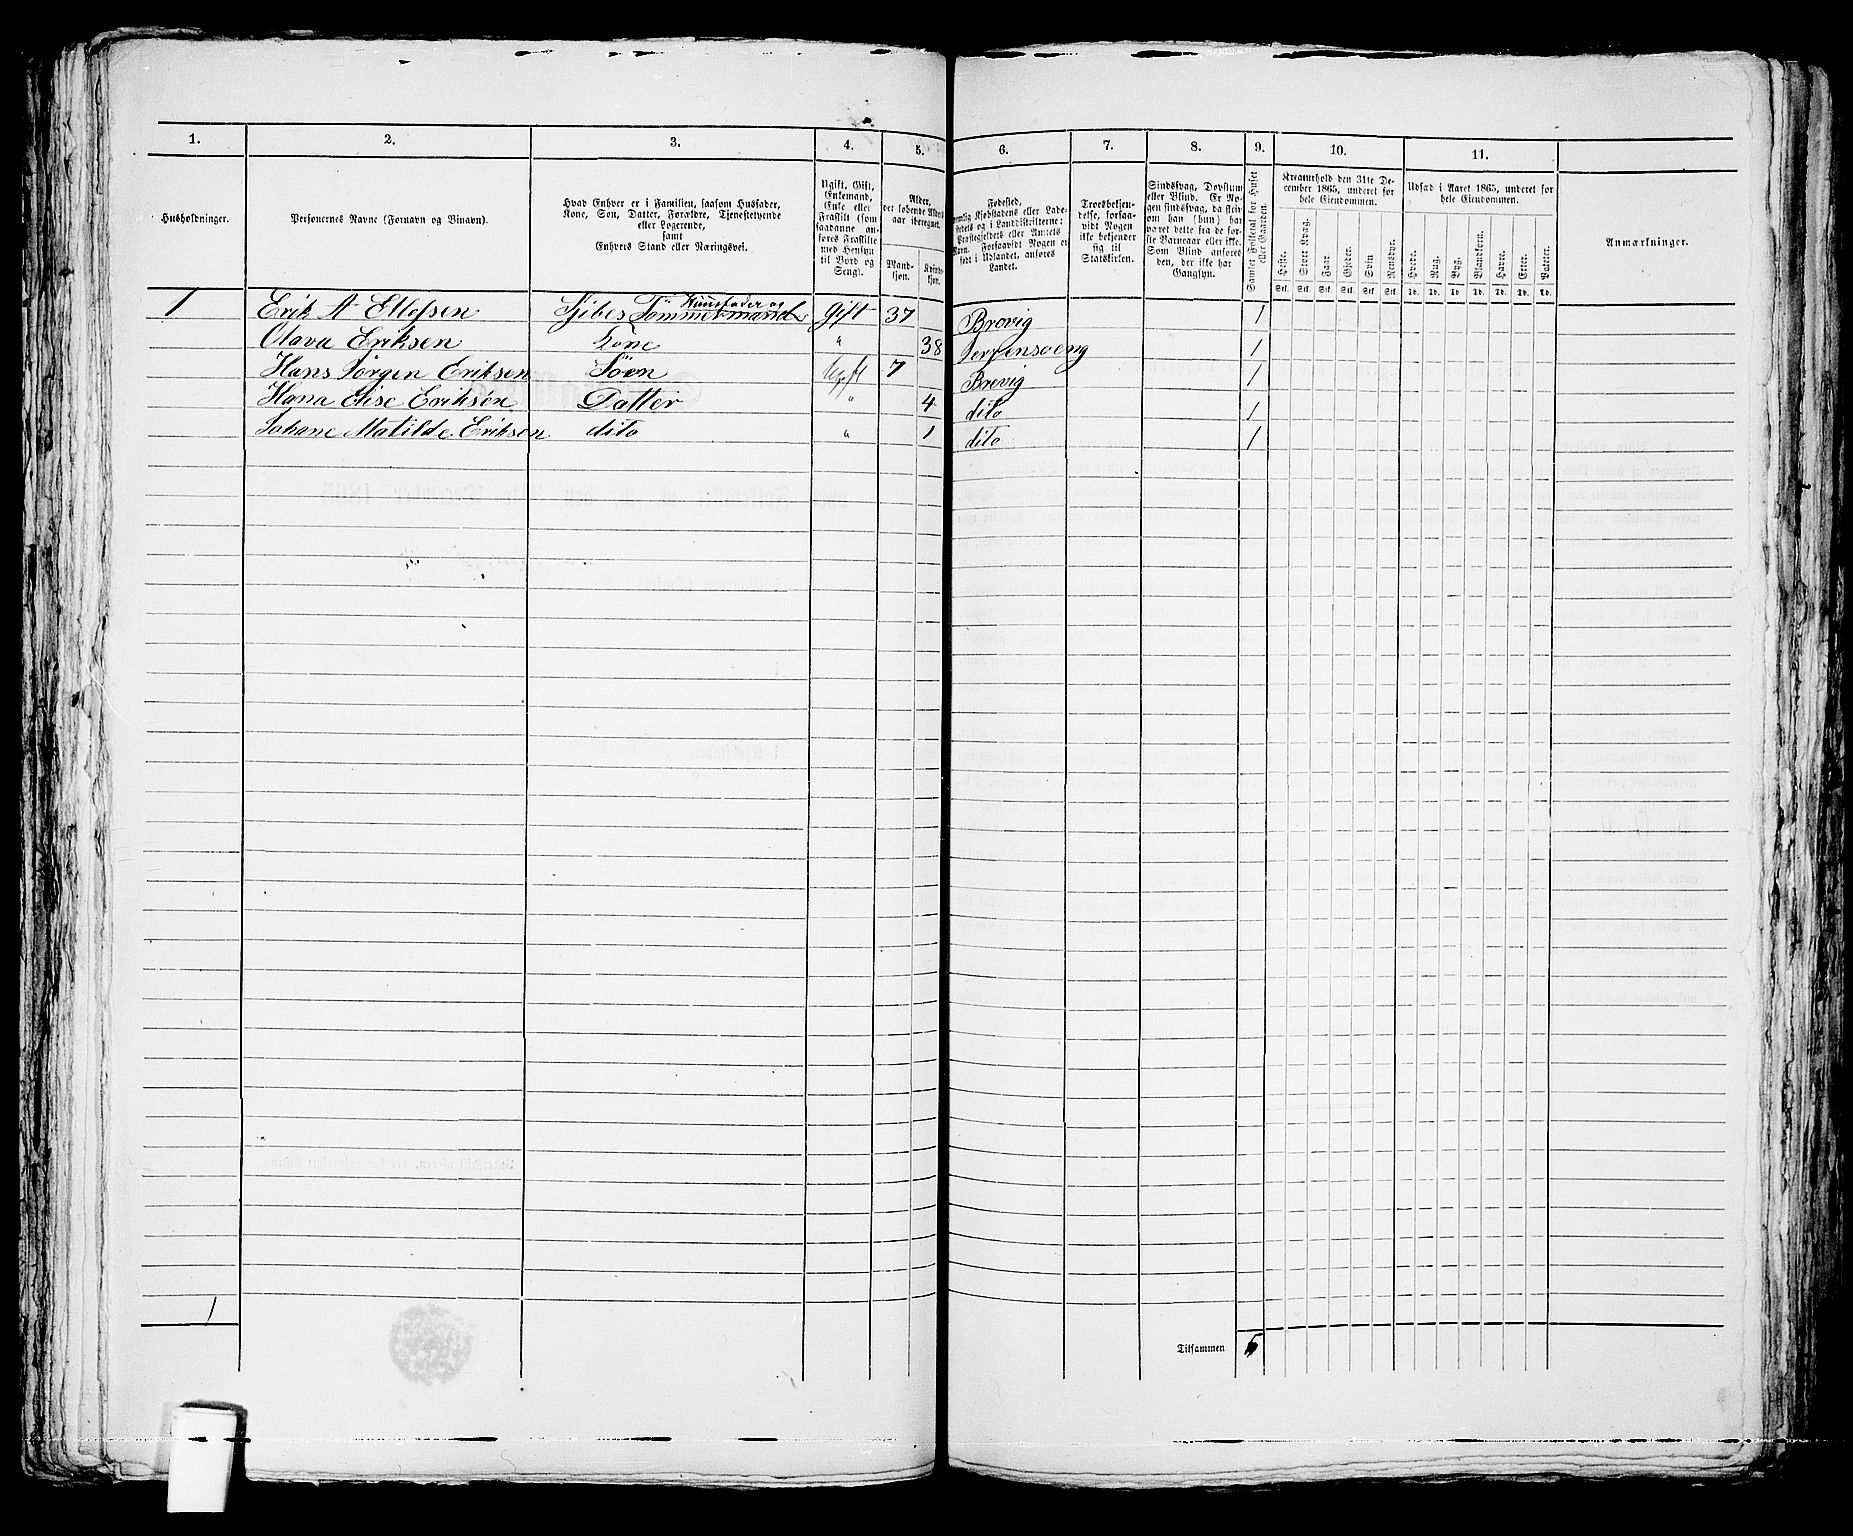 1. 2. 3. 4. 5. 6. 7. 8. 9. 10. 11.
Husholdninger.
Personernes Navne (Fornavn og Binavn).
Hvad Enhver er i Familien, saasom Husfader,
Kone, Søn, Datter, Forældre, Tjenestetyende
eller Logerende,
samt
Enhvers Stand eller Næringsvei.
Ugift, Gift,
Enkemand,
Enke eller
Fraskilt (som
saadanne an-
føres Fraskilte
med Hensyn
til Bord og
Seng).
Alder,
det løbende Alders-
aar iberegnet.
Mand-
kjøn.
Kvinde-
kjøn.
Fødested,
nemlig Kjøbstadens eller Lade-
stedets og i Landdistrikterne:
Præstegjeldets eller Amtets
Navn. Forsaavidt Nogen er
født i Udlandet, anføres
Landet.
Troesbekjen-
delse, forsaa-
vidt Nogen
ikke bekjender
sig til
Statskirken.
Sindssvag, Døvstum
eller Blind. Er No-
gen sindssvag, da skriv,
om han (hun) har
været dette fra de før-
ste Barneaar eller ikke.
Som Blind anføres
den, der ikke har
Gangsyn.
Samlet Folketal for Huset
eller Gaarden.
Kreaturhold den 31te De-
cember 1865, underet for
hele Eiendommen.
Heste. Stort Kvæg. Faar. Gjeder. Svin. Rensdyr.
Stk. Stk. Stk. Stk. Stk. Stk.
Udsæd i Aaret 1865, underet for
hele Eiendommen.
Hvede. Rug. Byg. Blandkorn. Havre. Erter. Poteter.
Td. Td. Td. Td. Td. Td. Td.
Anmærkninger.
Huusfader og
1 Erik A Ellefsen Skibes Tömmermand Gift 37 Brevig 1
Olava Eriksen Kone " 38 1
Hans Jørgen Eriksen Söen Ugift 7 Brevig 1
Hana Elise Eriksen Datter " 4 dito 1
Johane Matilde Eriksen dito " 1 dito 1
1
Tilsammen 5